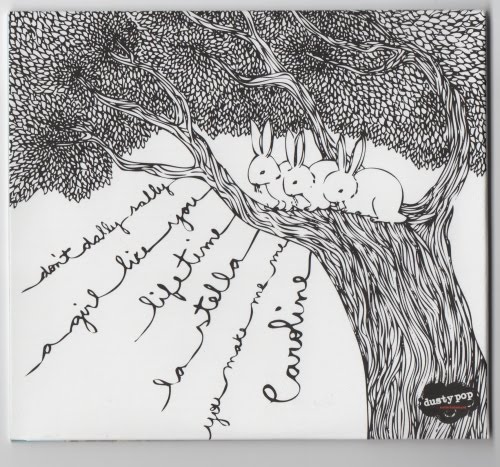 don't dally sally
a girl like you
lifetime
la stella
you make me me
Caroline
dusty pop